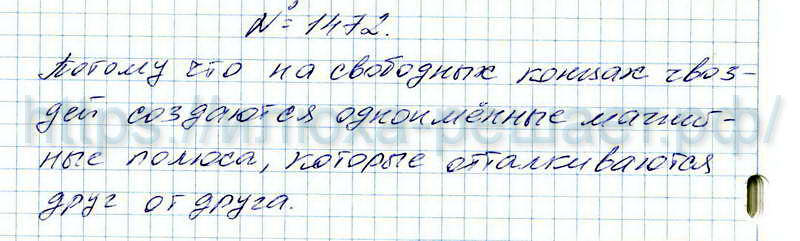 № 1472.
Потому что на свободных концах гвоз-
дей создаются одноимённые магнит-
ные полюса, которые отталкиваются
друг от друга.